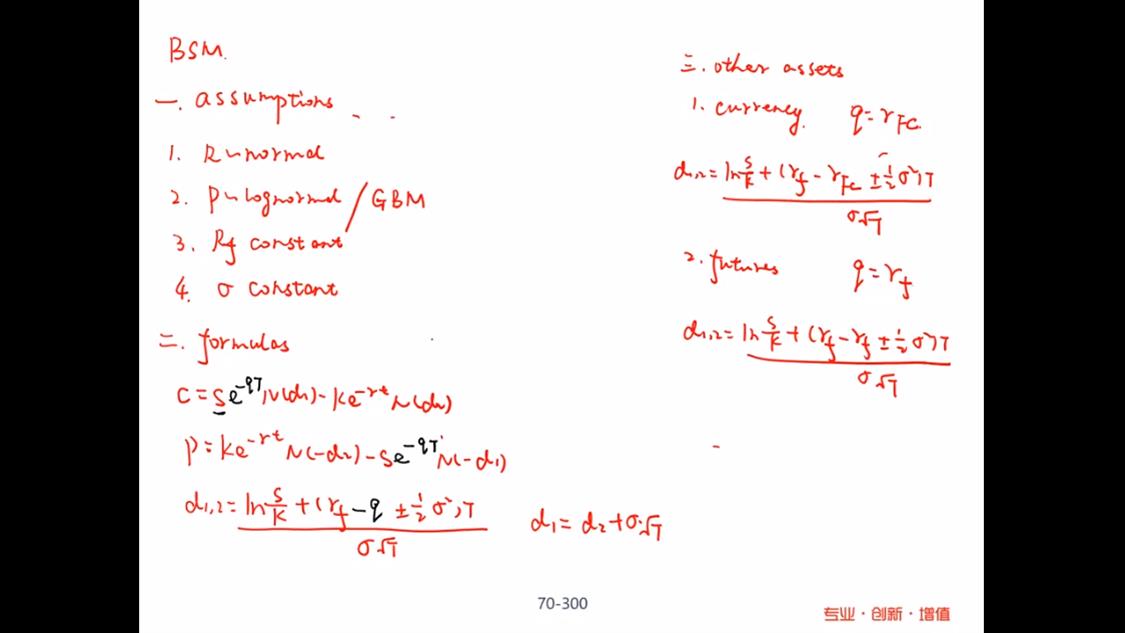 BSM.
一. assumptions
1. R~normal
2. P~lognormal / GBM
3. Rf constant
4. σ constant
二. formulas
c = Se^{-qT}N(d₁) - Ke^{-rt}N(d₂)
p = Ke^{-rt}N(-d₂) - Se^{-qT}N(-d₁)
d₁,₂ = (ln S/K + (r_f - q ± ½σ²)T) / σ√T
d₁ = d₂ + σ√T
三. other assets
1. currency. q = r_FC
d₁,₂ = (ln S/K + (r_f - r_FC ± ½σ²)T) / σ√T
2. futures q = r_f
d₁,₂ = (ln S/K + (r_f - r_f ± ½σ²)T) / σ√T
70-300
专业·创新·增值